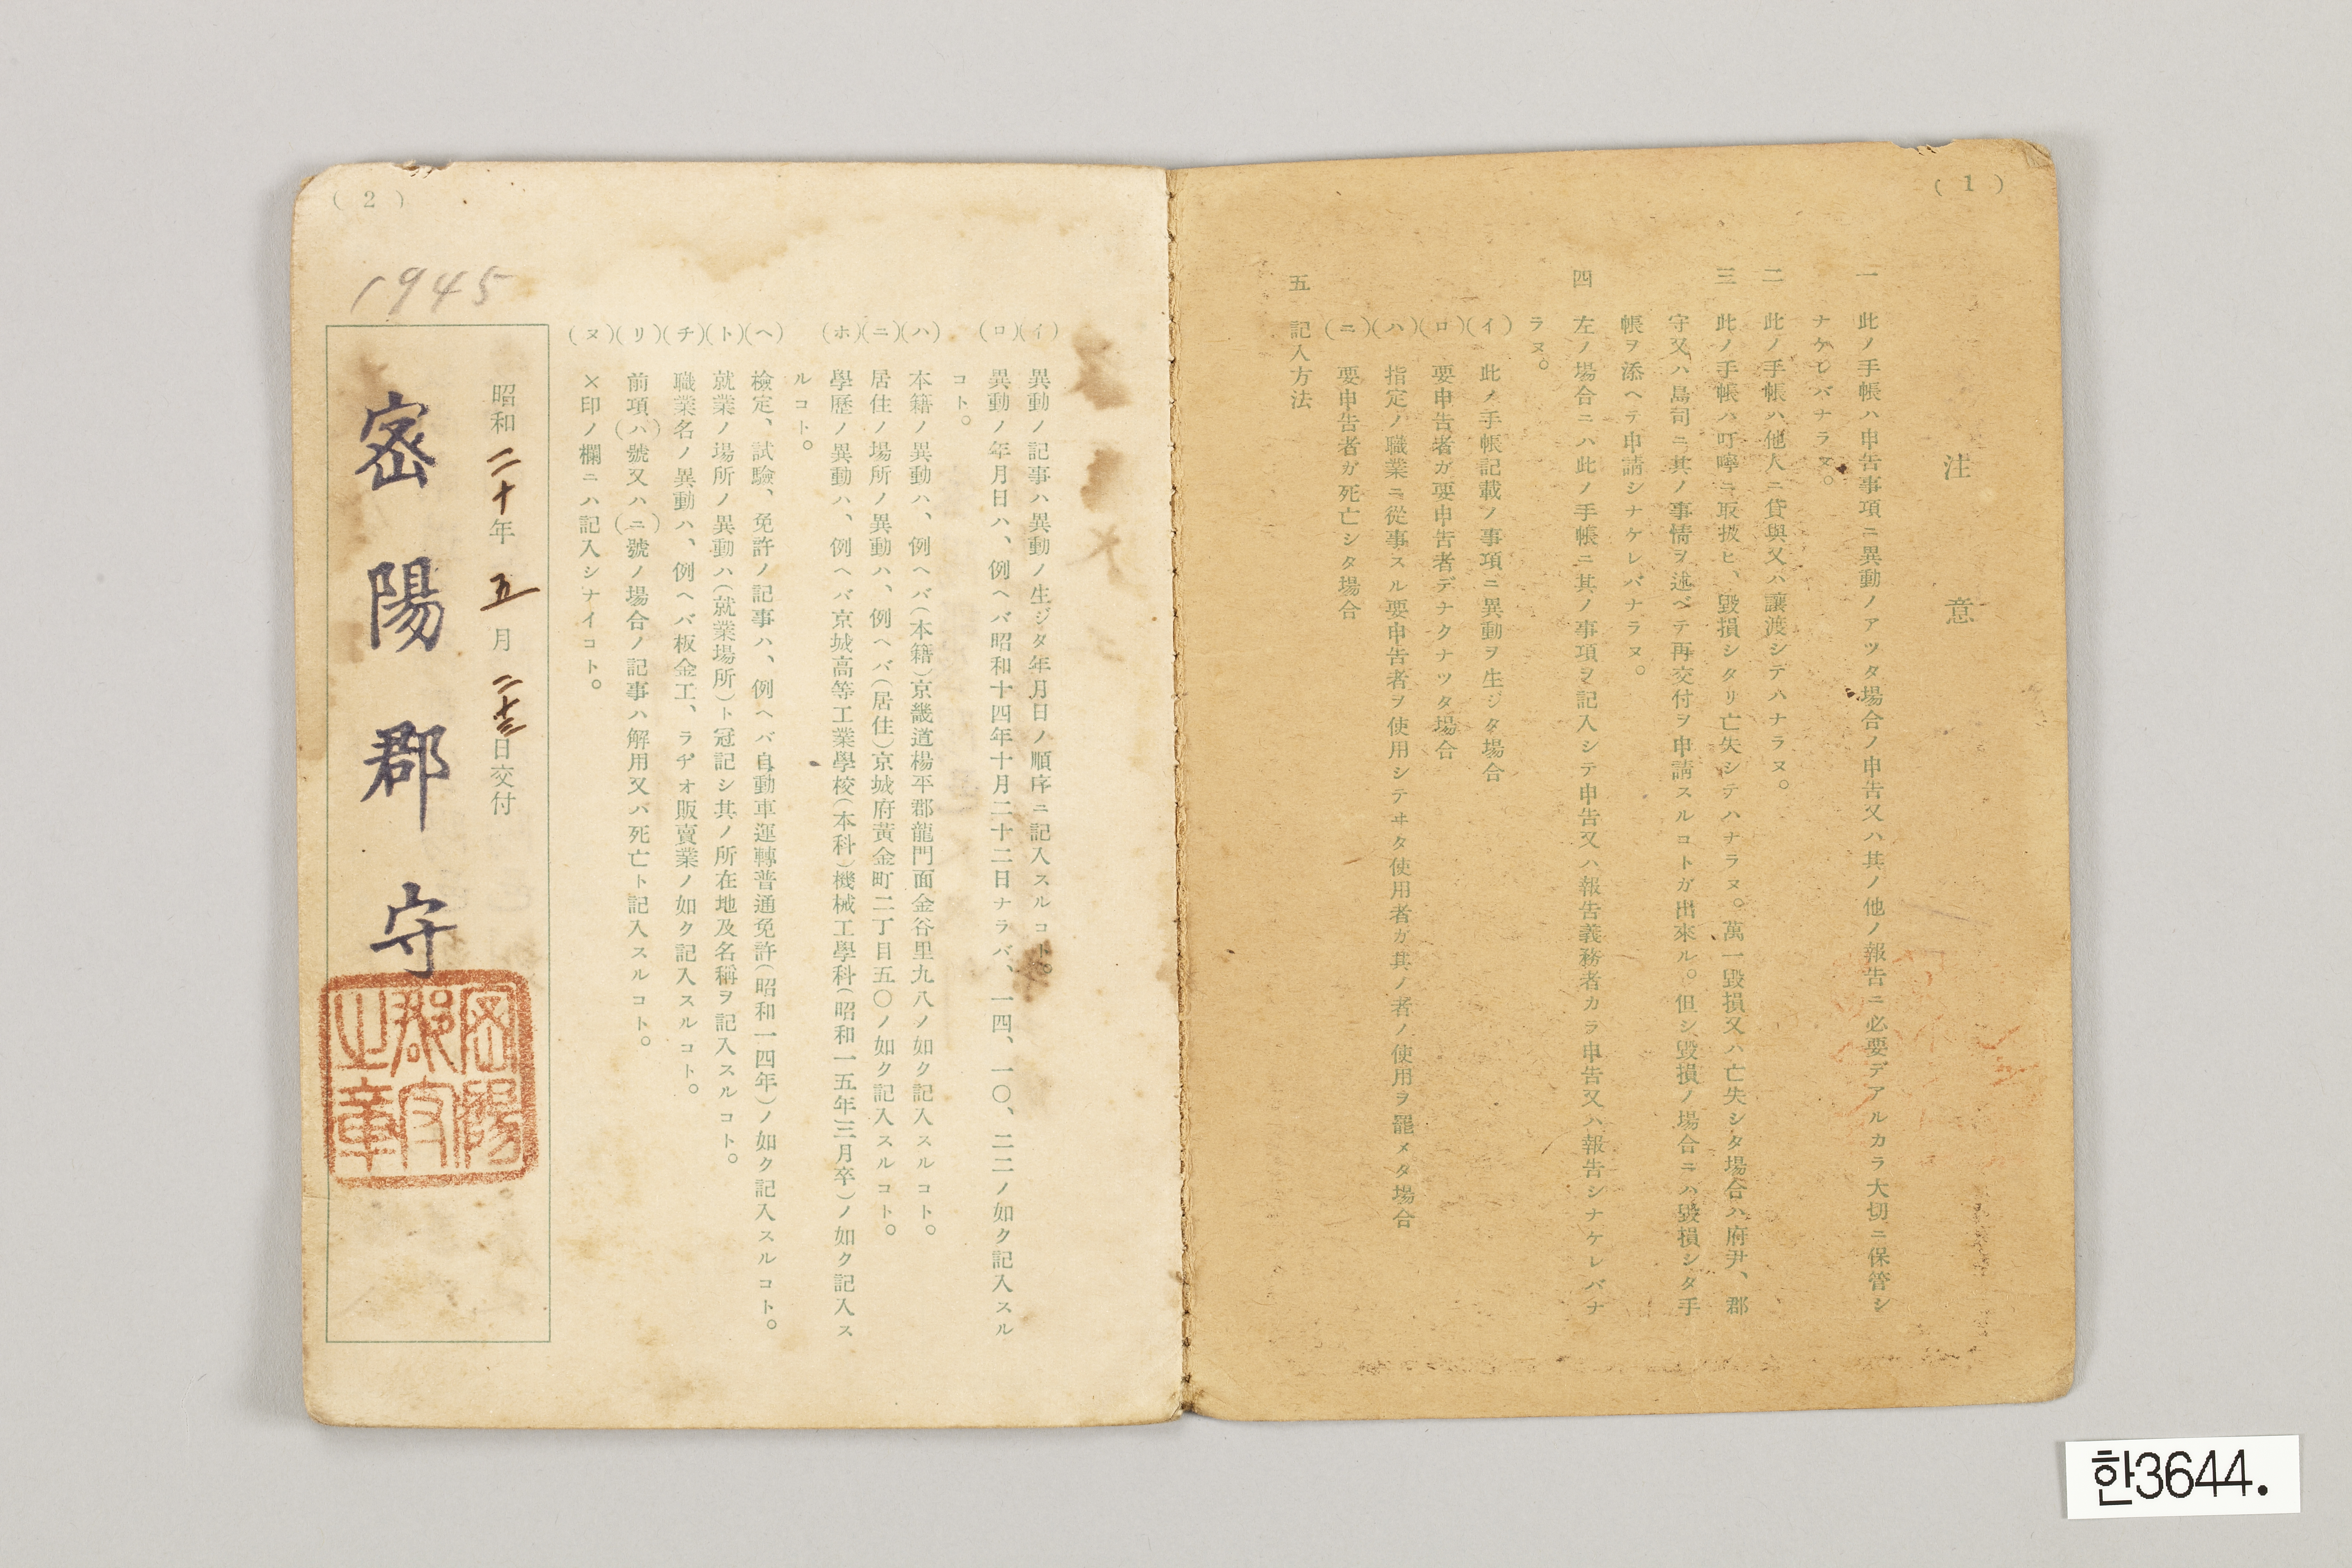 (1)
注意
一 此ノ手帳ハ申告事項ニ異動ノアツタ場合ノ申告又ハ其ノ他ノ報告ニ必要デアルカラ大切ニ保管シ
ナケレバナラヌ。
二 此ノ手帳ハ他人ニ貸與又ハ讓渡シテハナラヌ。
三 此ノ手帳ハ叮嚀ニ取扱ヒ、毀損シタリ亡失シテハナラヌ。萬一毀損又ハ亡失シタ場合ハ府尹、郡
守又ハ島司ニ其ノ事情ヲ述ベテ再交付ヲ申請スルコトガ出來ル。但シ毀損ノ場合ニハ毀損シタ手
帳ヲ添ヘテ申請シナケレバナラヌ。
四 左ノ場合ニハ此ノ手帳ニ其ノ事項ヲ記入シテ申告又ハ報告義務者カラ申告又ハ報告シナケレバナ
ラヌ。
(イ) 此ノ手帳記載ノ事項ニ異動ヲ生ジタ場合
(ロ) 要申告者ガ要申告者デナクナツタ場合
(ハ) 指定ノ職業ニ從事スル要申告者ヲ使用シテヰタ使用者ガ其ノ者ノ使用ヲ罷メタ場合
(ニ) 要申告者ガ死亡シタ場合
五 記入方法
(2)
(イ) 異動ノ記事ハ異動ノ生ジタ年月日ノ順序ニ記入スルコト。
(ロ) 異動ノ年月日ハ、例ヘバ昭和十四年十月二十二日ナラバ、一四、一〇、二二ノ如ク記入スル
コト。
(ハ) 本籍ノ異動ハ、例ヘバ(本籍)京畿道楊平郡龍門面金谷里九八ノ如ク記入スルコト。
(ニ) 居住ノ場所ノ異動ハ、例ヘバ(居住)京城府黃金町二丁目五〇ノ如ク記入スルコト。
(ホ) 學歷ノ異動ハ、例ヘバ京城高等工業學校(本科)機械工學科(昭和一五年三月卒)ノ如ク記入ス
ルコト。
(ヘ) 檢定、試驗、免許ノ記事ハ、例ヘバ自動車運轉普通免許(昭和一四年)ノ如ク記入スルコト。
(ト) 就業ノ場所ノ異動ハ(就業場所)ト冠記シ其ノ所在地及名稱ヲ記入スルコト。
(チ) 職業名ノ異動ハ、例ヘバ板金工、ラヂオ販賣業ノ如ク記入スルコト。
(リ) 前項(ハ)號又ハ(ニ)號ノ場合ノ記事ハ解用又バ死亡ト記入スルコト。
(ヌ) ×印ノ欄ニハ記入シナイコト。
1945
昭和二十年五月二十三日交付
密陽郡守
密陽郡守之章
한3644.